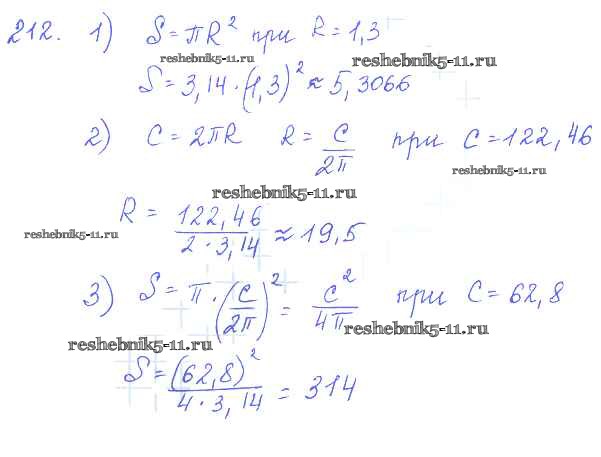 212. 1) S = πR² при R = 1,3
reshebnik5-11.ru reshebnik5-11.ru
S = 3,14 · (1,3)² ≈ 5,3066
2) C = 2πR R = C/2π при C = 122,46
reshebnik5-11.ru
reshebnik5-11.ru
R = 122,46/2·3,14 ≈ 19,5
reshebnik5-11.ru
3) S = π · (C/2π)² = C²/4π при C = 62,8
reshebnik5-11.ru
reshebnik5-11.ru
S = (62,8)²/4·3,14 = 314